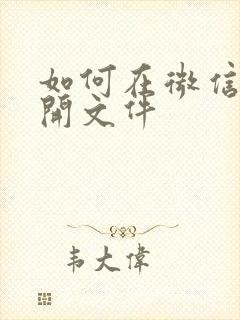 如何在微信
開文件
韦大偉